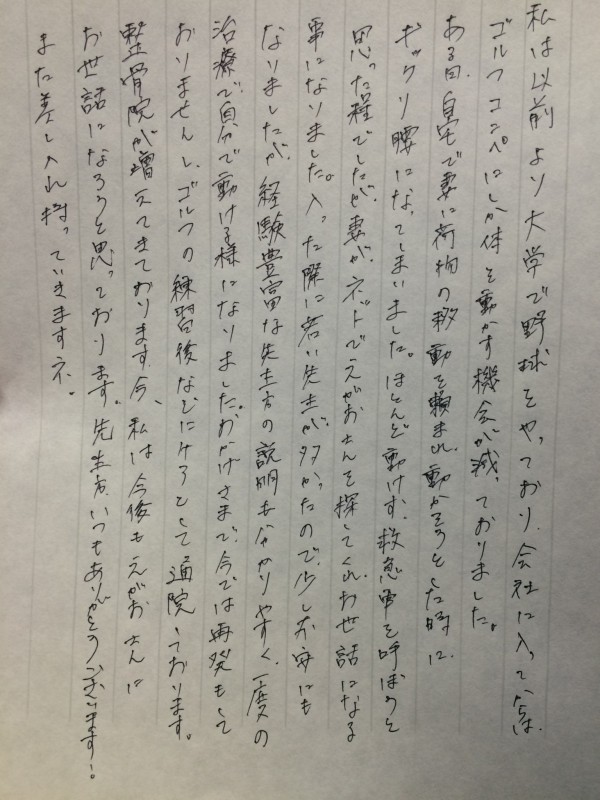 私は以前より大学で野球をやっており、会社に入ってからは、
ゴルフコンペにしか体を動かす機会が減っておりました。
ある日、自宅で妻に荷物の移動を頼まれ、動かそうとした時に、
ギックリ腰になってしまいました。ほとんど動けず、救急車を呼ぼうと
思った程でしたが、妻が、ネットでえがおさんを探してくれ、お世話になる
事になりました。入った際に若い先生が多かったので、少し不安にも
なりましたが、経験豊富な先生方の説明も分かりやすく、一度の
治療で、自分で動ける様になりました。おかげさまで、今では再発もして
おりませんし、ゴルフの練習後などにケアとして通院しております。
整骨院が増えてきております今、私は今後もえがおさんに
お世話になろうと思っております。先生方、いつもありがとうございます！
また差し入れ持っていきますネ。